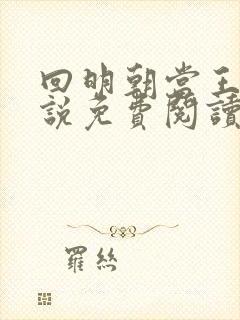 回明朝當王
說免費閱讀
羅絲